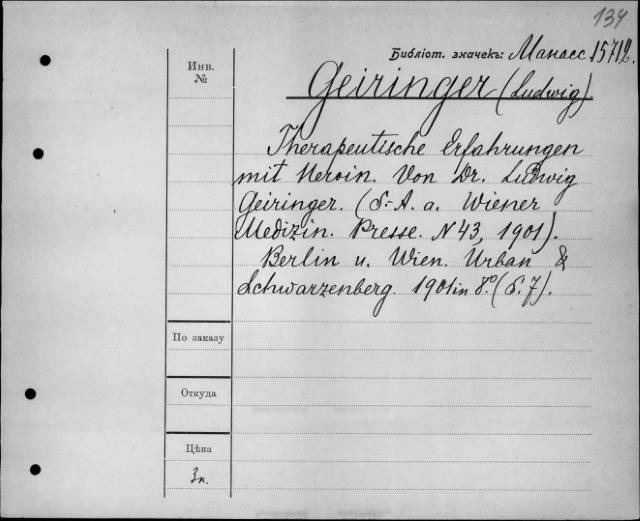 134
Библіот. значекъ: Манасс. 15712.
Инв.
№
Geiringer (Ludwig)
Therapeutische Erfahrungen
mit Heroin. Von Dr. Ludwig
Geiringer. (S.-A. a. Wiener
Medizin. Presse. N 43, 1901).
Berlin u. Wien. Urban &
Schwarzenberg. 1901 in 8.° (S. 7).
По заказу
Откуда
Цѣна
3к.